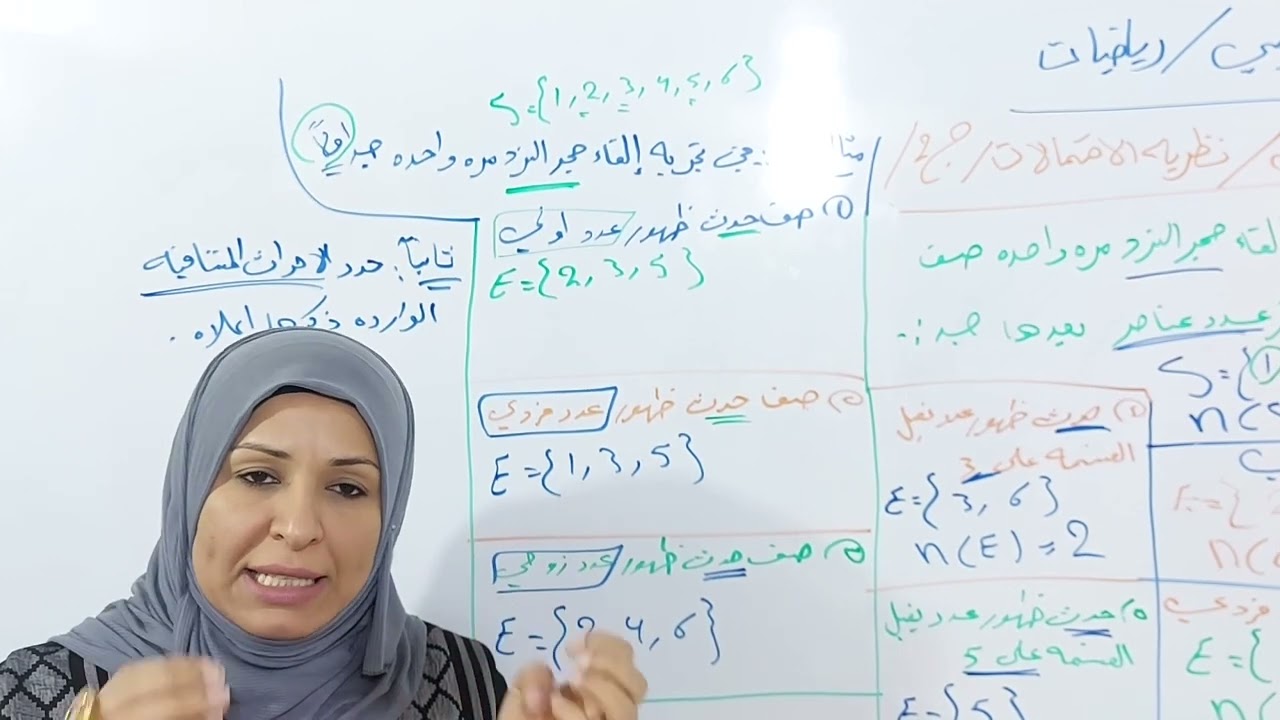 رياضيات
نظريه الاحتمالات / ج2 /
حجر النرد مره واحده صف
عدد عناصر بعدها جد :-
S={1
n(
① حدث ظهور عدد يقبل
القسمه على 3
E={3, 6}
n(E)=2
② حدث ظهور عدد يقبل
القسمه على 5
E={5}
فردي
E={
n(
S={1,2,3,4,5,6}
مثال :- في تجربه إلقاء حجر النرد مره واحده جد اولاً
① صف حدث ظهور عدد اولي
E={2,3,5}
② صف حدث ظهور عدد فردي
E={1,3,5}
③ صف حدث ظهور عدد زوجي
E={2,4,6}
ثانياً : حدد الاحداث المتنافيه
الوارده ذكرها اعلاه .